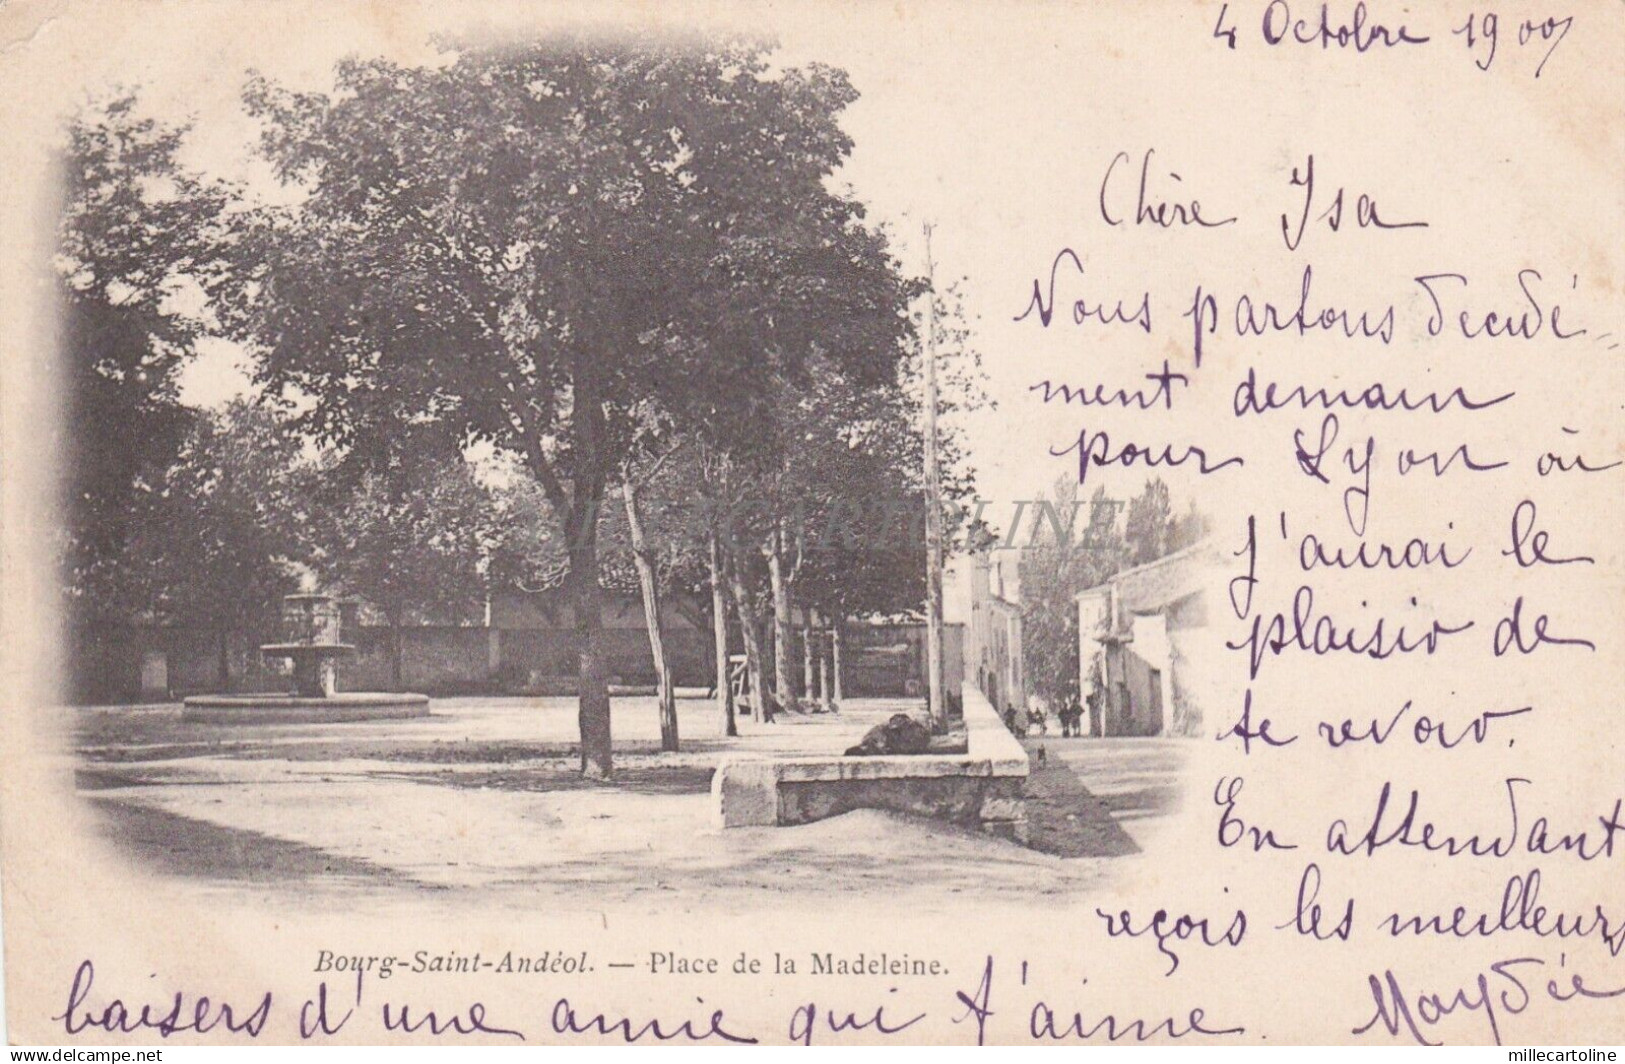 4 Octobre 1900
Chère Isa
Nous partons décidé-
ment demain
pour Lyon où
j'aurai le
plaisir de
te revoir.
En attendant
reçois les meilleurs
Bourg-Saint-Andéol. — Place de la Madeleine.
baisers d'une amie qui t'aime.
MILLECARTOLINE
millecartoline millecartoline